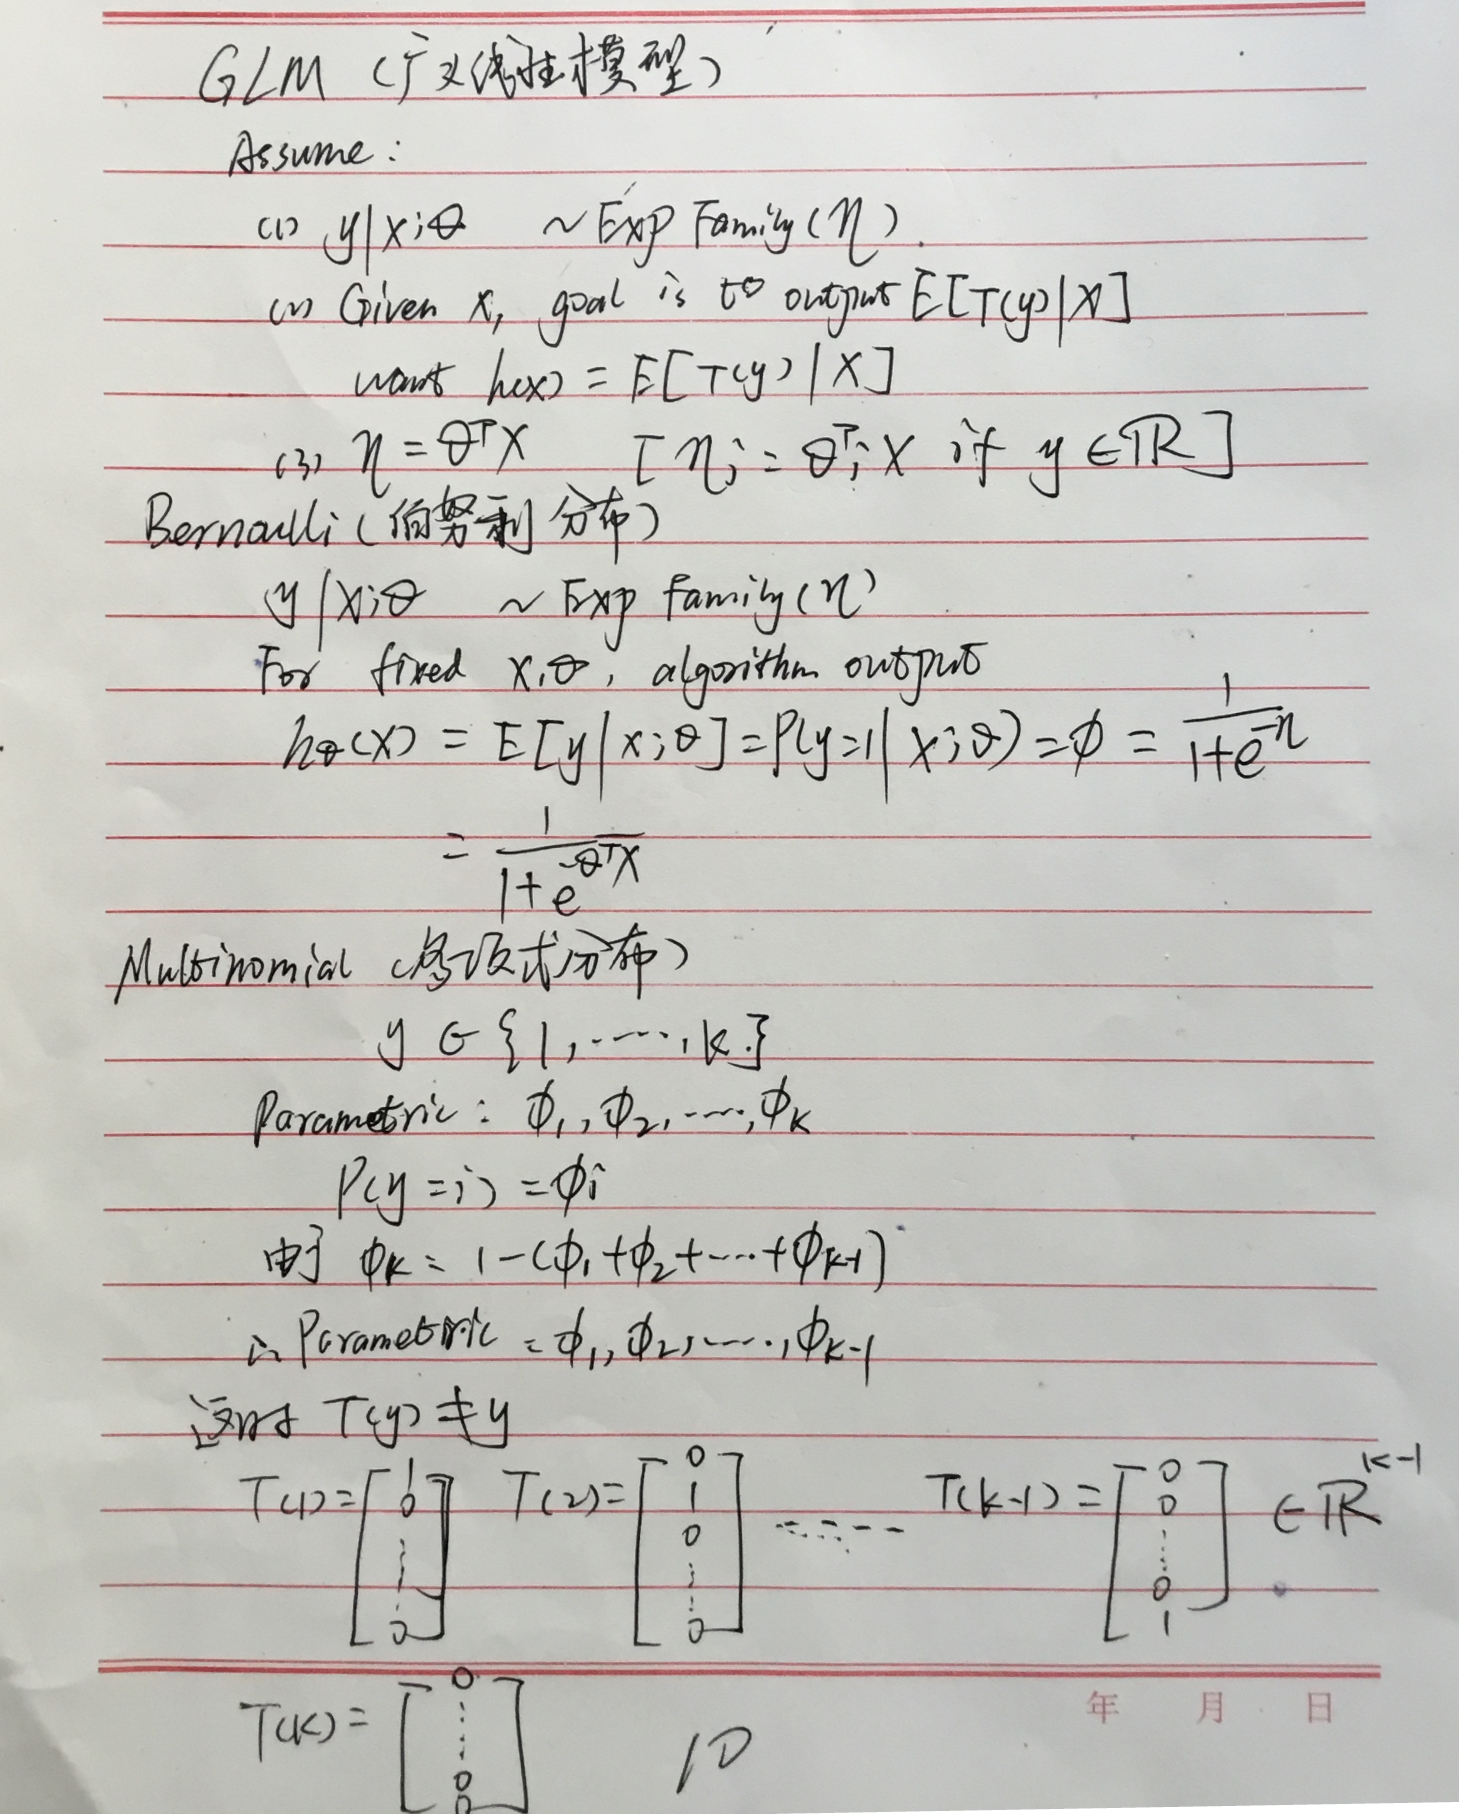 GLM (广义线性模型)
Assume:
(1) y|x;θ ~ Exp Family(η).
(2) Given x, goal is to output E[T(y)|X]
want h(x) = E[T(y)|X]
(3) η = θᵀX [ηᵢ = θᵀᵢX if y ∈ ℝ]
Bernoulli (伯努利分布)
y|x;θ ~ Exp Family(η)
For fixed x,θ, algorithm output
hθ(X) = E[y|x;θ] = P(y=1|x;θ) = ϕ = 1/(1+e^-η)
= 1/(1+e^-θᵀX)
Multinomial (多项式分布)
y ∈ {1,······,k}
Parametric: ϕ₁, ϕ₂, ····, ϕk
P(y=i) = ϕi
由于 ϕk = 1-(ϕ₁+ϕ₂+···+ϕk-1)
∴ Parametric = ϕ₁, ϕ₂, ····, ϕk-1
这时 T(y) ≠ y
T(1)=[1 0 ⋮ 0] T(2)=[0 1 0 ⋮ 0] ------ T(k-1)=[0 0 ⋮ 0 1] ∈ ℝ^k-1
年 月 日
T(k)=[0 ⋮ 0 0] 10